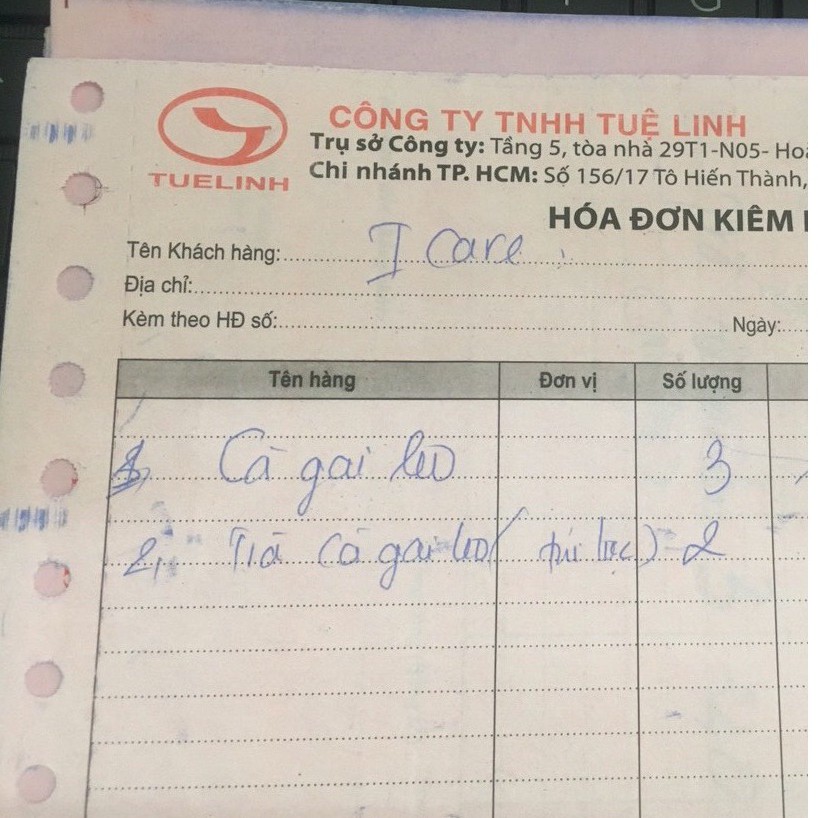 CÔNG TY TNHH TUỆ LINH
Trụ sở Công ty: Tầng 5, tòa nhà 29T1-N05- Hoà
TUELINH Chi nhánh TP. HCM: Số 156/17 Tô Hiến Thành,
HÓA ĐƠN KIÊM
Tên Khách hàng: I Care
Địa chỉ:
Kèm theo HĐ số: Ngày:
Tên hàng Đơn vị Số lượng
1, Cà gai leo 3
2, Trà Cà gai leo (túi lọc) 2